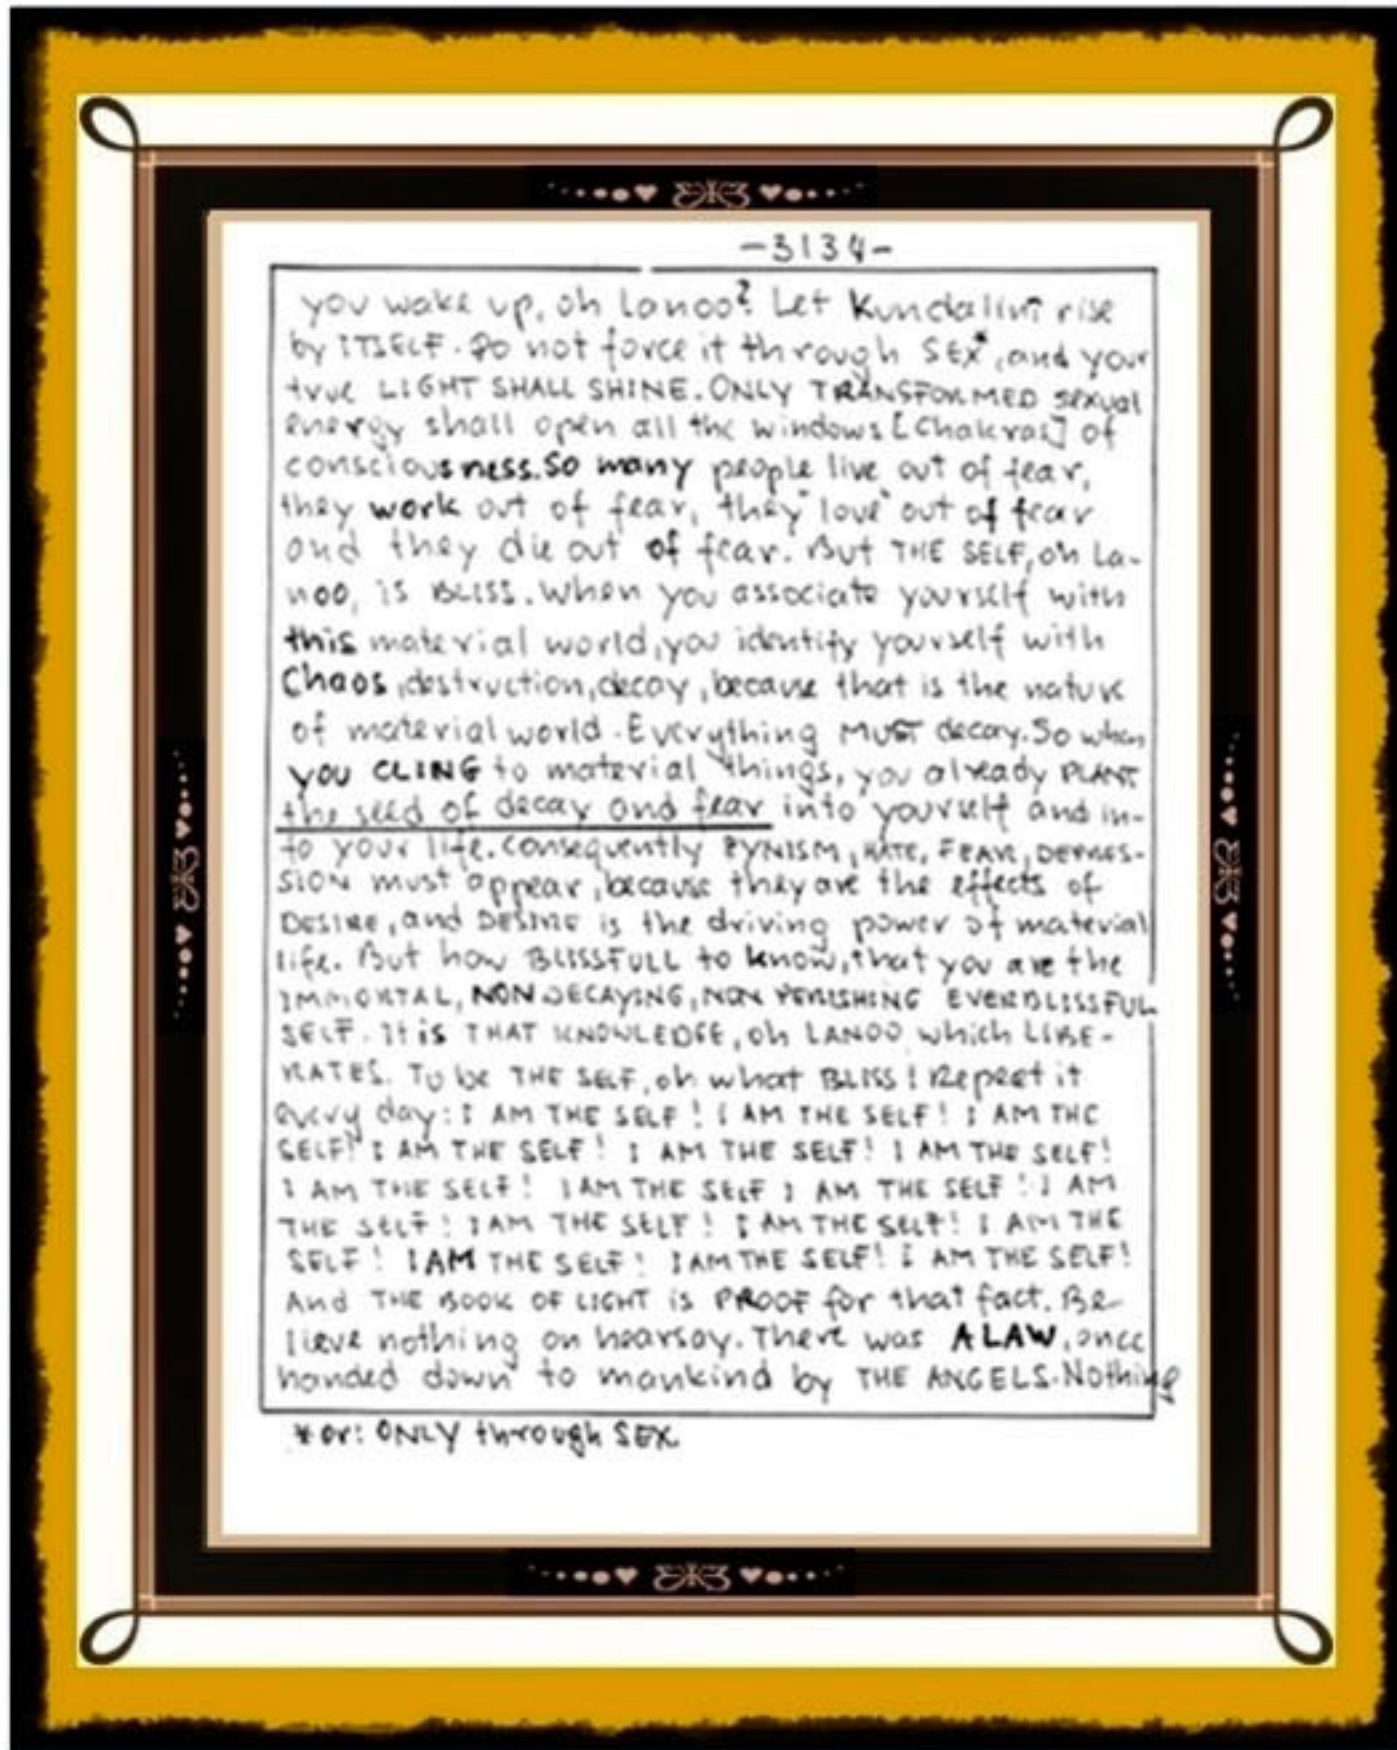 -3134-
you wake up, oh Lanoo? Let Kundalini rise
by ITSELF. Do not force it through SEX*, and your
true LIGHT SHALL SHINE. ONLY TRANSFORMED sexual
energy shall open all the windows [Chakras] of
consciousness. So many people live out of fear,
they work out of fear, they "love" out of fear
and they die out of fear. But THE SELF, oh La-
noo, is BLISS. When you associate yourself with
this material world, you identify yourself with
Chaos, destruction, decay, because that is the nature
of material world. Everything MUST decay. So when
you CLING to material things, you already PLANT
the seed of decay and fear into yourself and in-
to your life. Consequently ZYNISM, HATE, FEAR, DEPRES-
SION must appear, because they are the effects of
DESIRE, and DESIRE is the driving power of material
life. But how BLISSFULL to know, that you are the
IMMORTAL, NON DECAYING, NON PERISHING EVERBLISSFUL
SELF. It is THAT KNOWLEDGE, oh LANOO which LIBE-
RATES. To be THE SELF, oh what BLISS! Repeat it
every day: I AM THE SELF! I AM THE SELF! I AM THE
SELF! I AM THE SELF! I AM THE SELF! I AM THE SELF!
I AM THE SELF! I AM THE SELF I AM THE SELF! I AM
THE SELF! I AM THE SELF! I AM THE SELF! I AM THE
SELF! I AM THE SELF! I AM THE SELF! I AM THE SELF!
And THE BOOK OF LIGHT is PROOF for that fact. Be
lieve nothing on hearsay. There was A LAW, once
handed down to mankind by THE ANGELS. Nothing
*or: ONLY through SEX